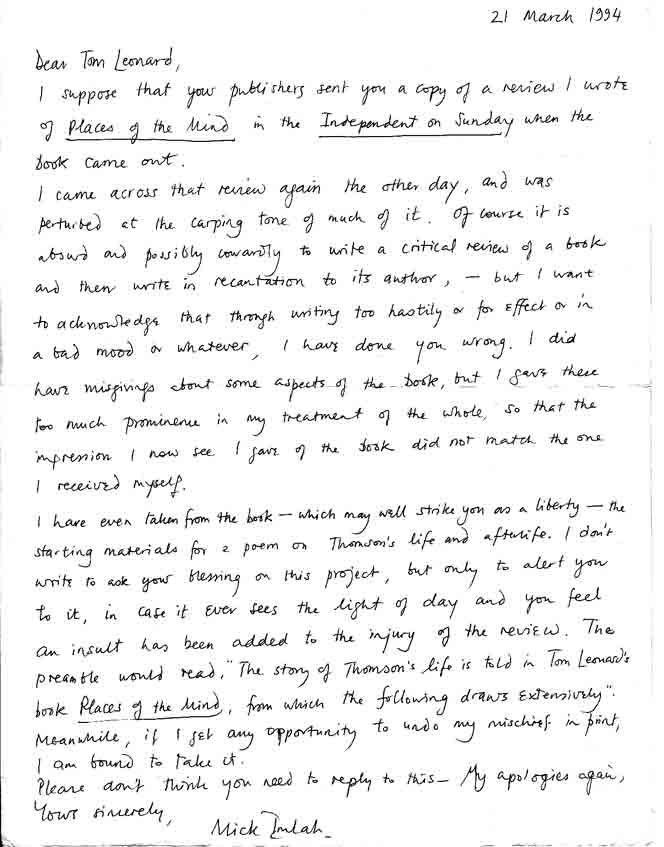 21 March 1994
Dear Tom Leonard,
I suppose that your publishers sent you a copy of a review I wrote
of Places of the Mind in the Independent on Sunday when the
book came out.
I came across that review again the other day, and was
perturbed at the carping tone of much of it. Of course it is
absurd and possibly cowardly to write a critical review of a book
and then write in recantation to its author, – but I want
to acknowledge that through writing too hastily or for effect or in
a bad mood or whatever, I have done you wrong. I did
have misgivings about some aspects of the book, but I gave these
too much prominence in my treatment of the whole, so that the
impression I now see I gave of the book did not match the one
I received myself.
I have even taken from the book – which may well strike you as a liberty – the
starting materials for a poem on Thomson's life and afterlife. I don't
write to ask your blessing on this project, but only to alert you
to it, in case it ever sees the light of day and you feel
an insult has been added to the injury of the review. The
preamble would read, "The story of Thomson's life is told in Tom Leonard's
book Places of the Mind, from which the following draws extensively".
Meanwhile, if I get any opportunity to undo my mischief in print,
I am bound to take it.
Please don't think you need to reply to this – My apologies again,
Yours sincerely,
Mick Imlah